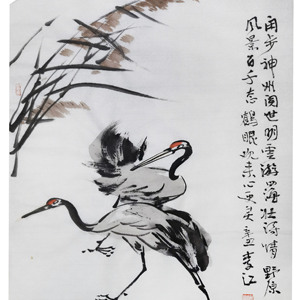 闲步神州阅世明云游四海壮诗情野原
风景百千态鹤眼观来心更美辛丑李江